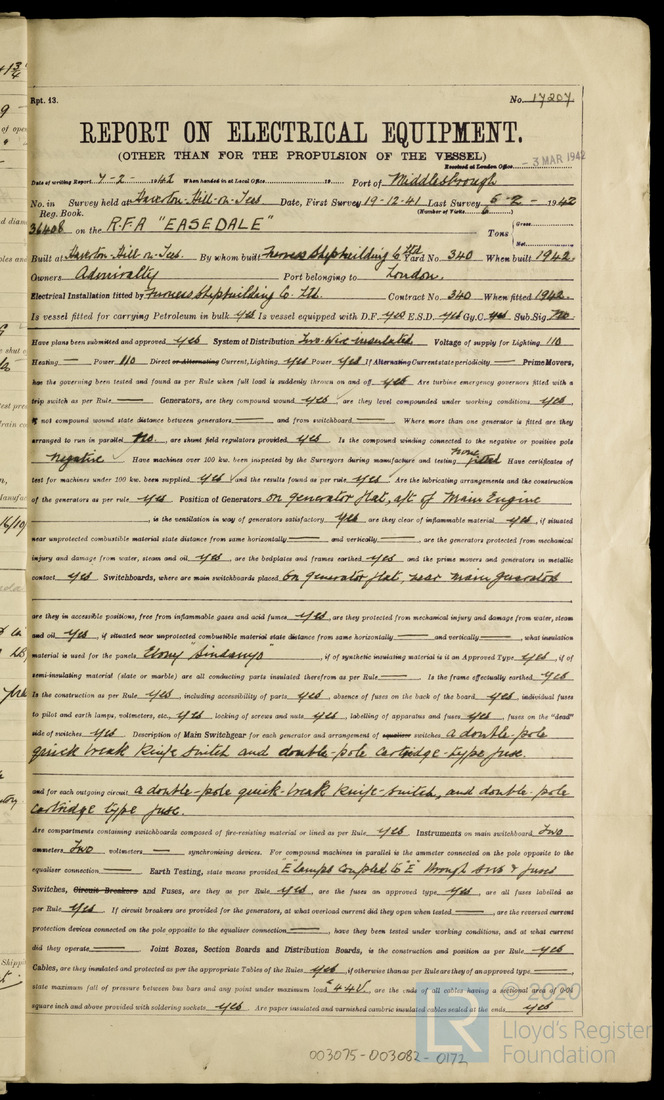 Rpt. 13.
No. 17207
REPORT ON ELECTRICAL EQUIPMENT.
(OTHER THAN FOR THE PROPULSION OF THE VESSEL)
Received at London Office
- 3 MAR 1942
Date of writing Report 7-2- 1942 When handed in at Local Office 19 Port of Middlesbrough
No. in Survey held at Haverton-Hill-on-Tees Date, First Survey 19-12-41 Last Survey 5-2- 1942
Reg. Book. (Number of Visits 6)
36408 on the R.F.A "EASEDALE" Tons { Gross Net
Built at Haverton-Hill-on-Tees By whom built Furness Shipbuilding Co Ltd Yard No. 340 When built 1942
Owners Admiralty Port belonging to London
Electrical Installation fitted by Furness Shipbuilding Co. Ltd. Contract No. 340 When fitted 1942
Is vessel fitted for carrying Petroleum in bulk yes Is vessel equipped with D.F. yes E.S.D. yes Gy.C. yes Sub.Sig. No
Have plans been submitted and approved yes System of Distribution Two-Wire insulated Voltage of supply for Lighting 110
Heating — Power 110 Direct or Alternating Current, Lighting yes Power yes If Alternating Current state periodicity — Prime Movers,
has the governing been tested and found as per Rule when full load is suddenly thrown on and off yes Are turbine emergency governors fitted with a
trip switch as per Rule — Generators, are they compound wound yes, are they level compounded under working conditions yes,
if not compound wound state distance between generators — and from switchboard — Where more than one generator is fitted are they
arranged to run in parallel No, are shunt field regulators provided yes Is the compound winding connected to the negative or positive pole
Negative Have machines over 100 kw. been inspected by the Surveyors during manufacture and testing None fitted Have certificates of
test for machines under 100 kw. been supplied yes and the results found as per rule yes Are the lubricating arrangements and the construction
of the generators as per rule yes Position of Generators on generator flat, aft of Main Engine
, is the ventilation in way of generators satisfactory yes are they clear of inflammable material yes, if situated
near unprotected combustible material state distance from same horizontally — and vertically —, are the generators protected from mechanical
injury and damage from water, steam and oil yes, are the bedplates and frames earthed yes and the prime movers and generators in metallic
contact yes Switchboards, where are main switchboards placed on generator flat, near main generators
are they in accessible positions, free from inflammable gases and acid fumes yes, are they protected from mechanical injury and damage from water, steam
and oil yes, if situated near unprotected combustible material state distance from same horizontally — and vertically —, what insulation
material is used for the panels Ebony "Sindanyo", if of synthetic insulating material is it an Approved Type yes, if of
semi-insulating material (slate or marble) are all conducting parts insulated therefrom as per Rule — Is the frame effectually earthed yes
Is the construction as per Rule yes, including accessibility of parts yes, absence of fuses on the back of the board yes, individual fuses
to pilot and earth lamps, voltmeters, etc., yes locking of screws and nuts yes, labelling of apparatus and fuses yes, fuses on the "dead"
side of switches yes Description of Main Switchgear for each generator and arrangement of equaliser switches a double-pole
quick break knife switch and double-pole cartridge-type fuse.
and for each outgoing circuit a double-pole quick-break knife-switch, and double-pole
cartridge type fuse.
Are compartments containing switchboards composed of fire-resisting material or lined as per Rule yes Instruments on main switchboard Two
ammeters Two voltmeters — synchronising devices. For compound machines in parallel is the ammeter connected on the pole opposite to the
equaliser connection — Earth Testing, state means provided "E" lamps coupled to "E" through sws & fuses
Switches, Circuit Breakers and Fuses, are they as per Rule yes, are the fuses an approved type yes, are all fuses labelled as
per Rule yes If circuit breakers are provided for the generators, at what overload current did they open when tested —, are the reversed current
protection devices connected on the pole opposite to the equaliser connection —, have they been tested under working conditions, and at what current
did they operate — Joint Boxes, Section Boards and Distribution Boards, is the construction and position as per Rule yes
Cables, are they insulated and protected as per the appropriate Tables of the Rules yes, if otherwise than as per Rule are they of an approved type —,
state maximum fall of pressure between bus bars and any point under maximum load 4.4V, are the ends of all cables having a sectional area of 0.04
square inch and above provided with soldering sockets yes Are paper insulated and varnished cambric insulated cables sealed at the ends yes
© 2020
LR Lloyd's Register
Foundation
003075-003082-0172